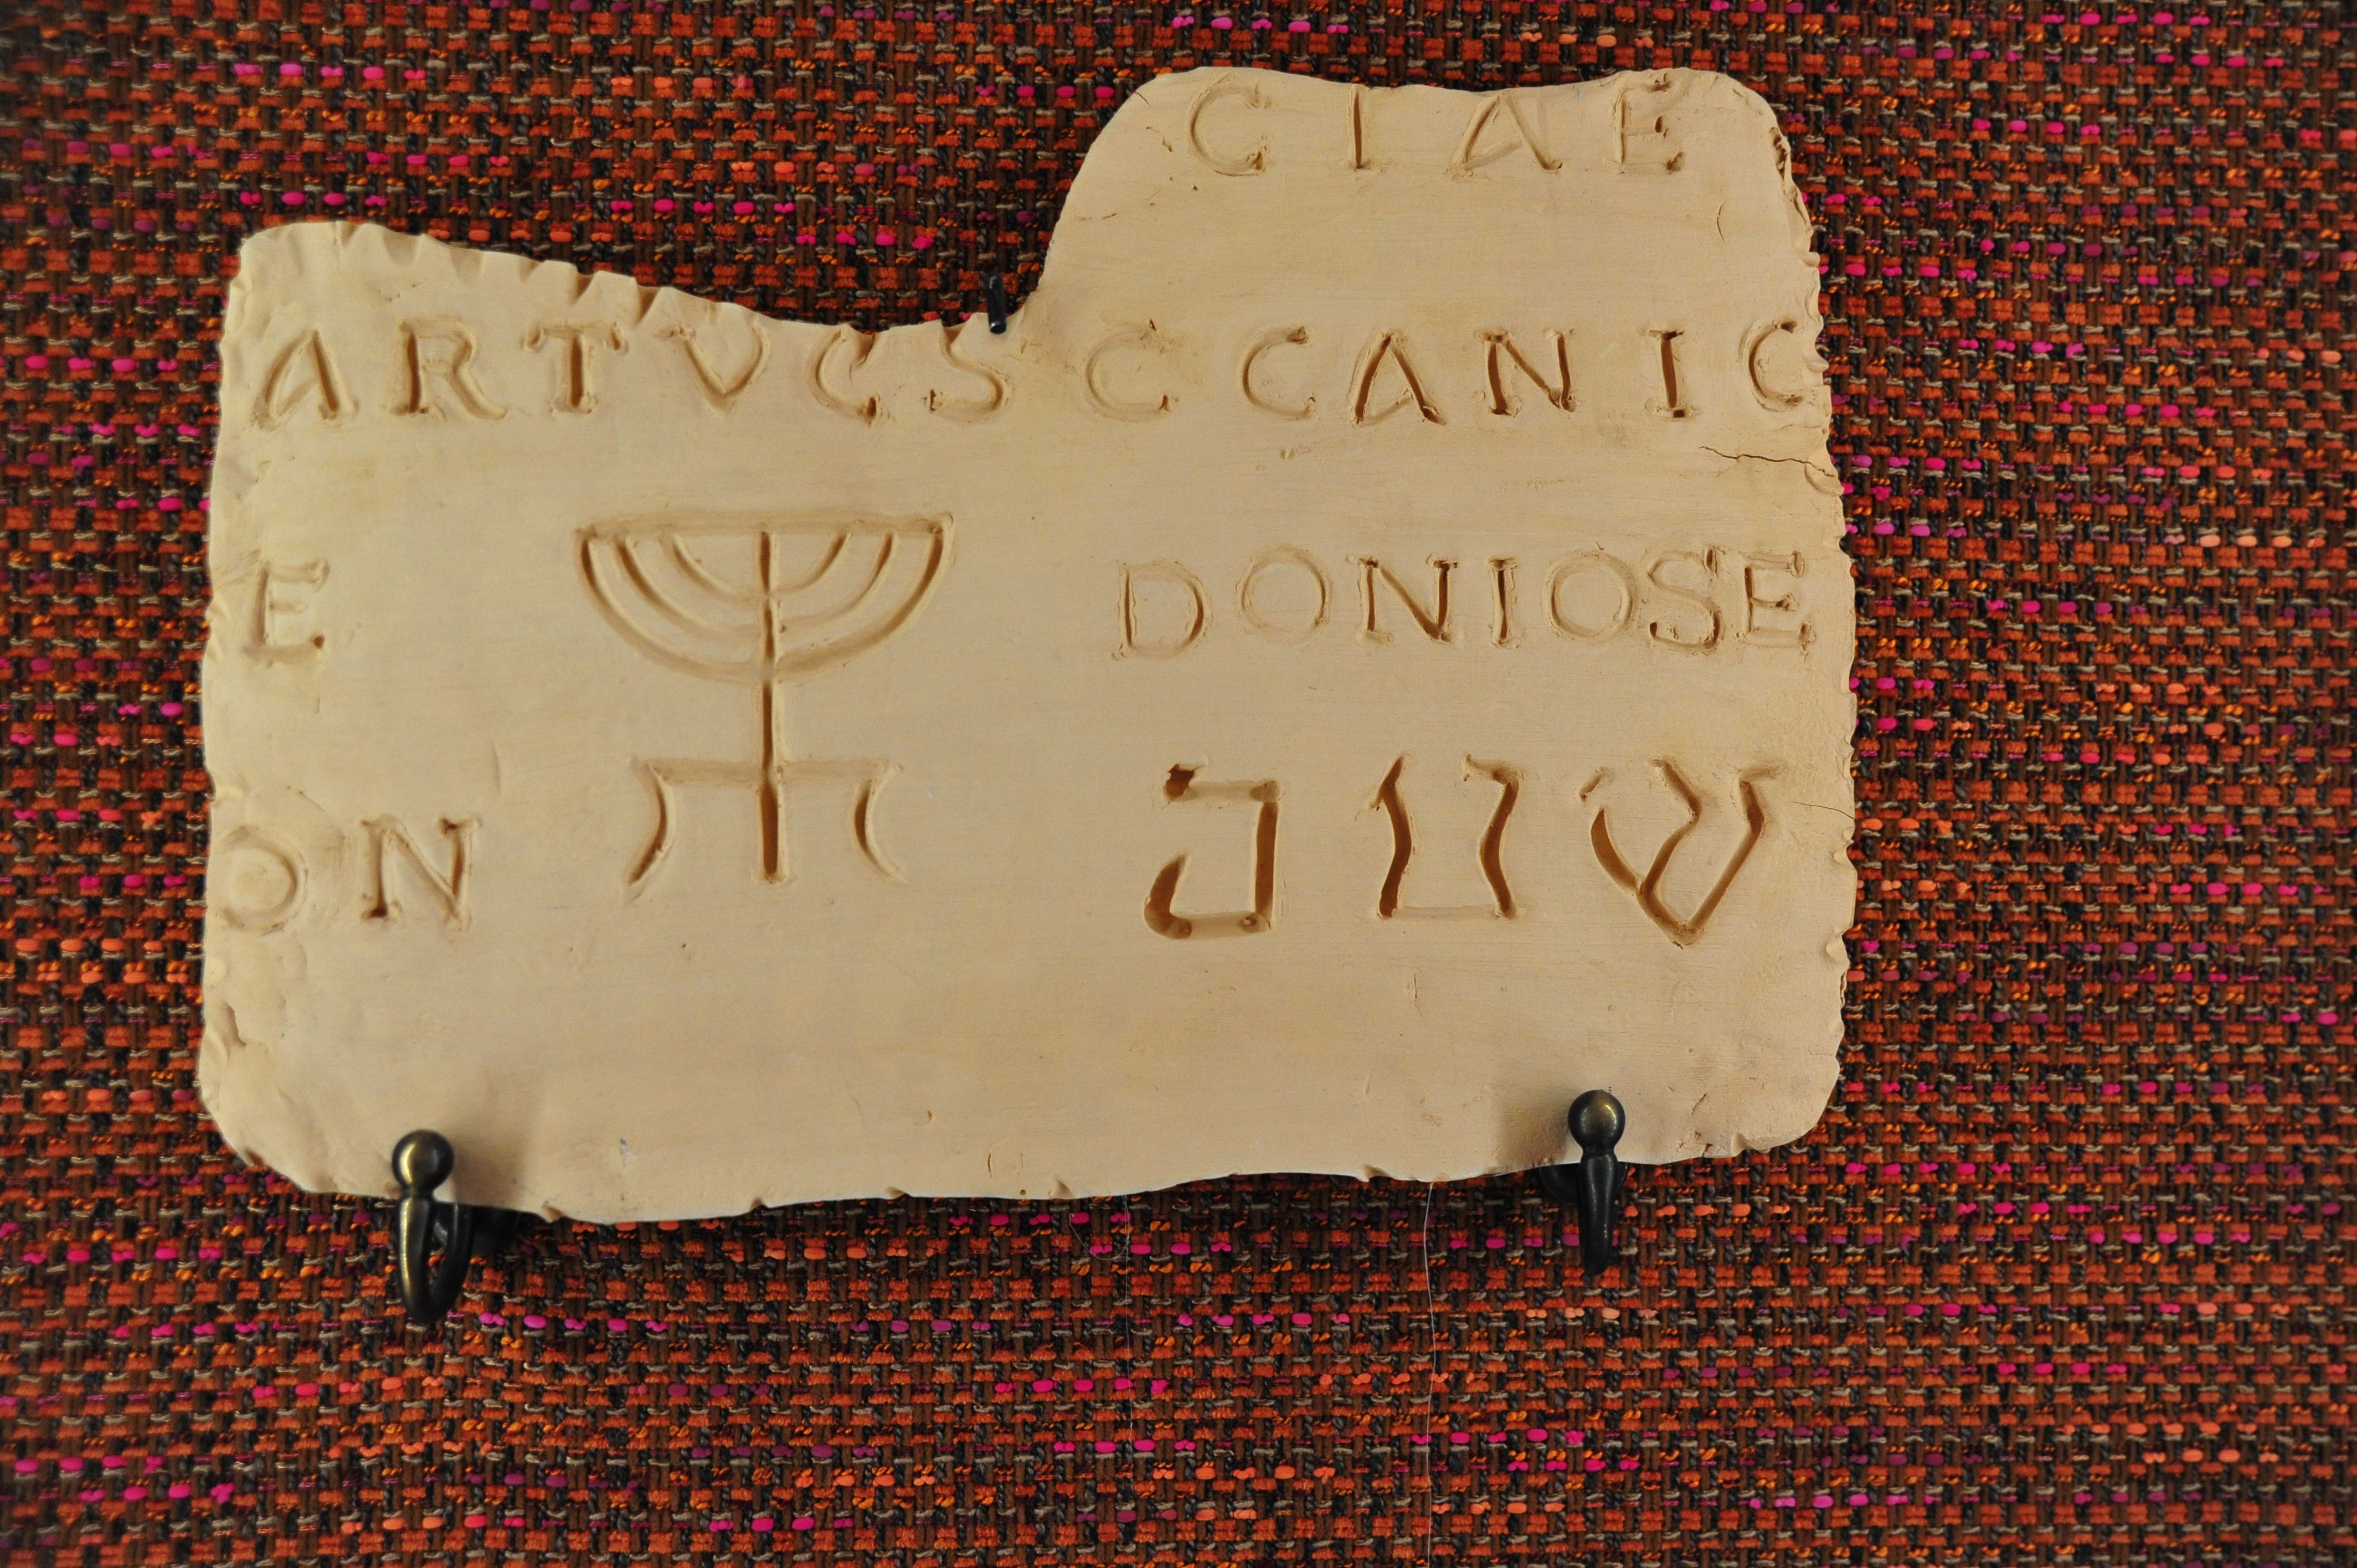 CIAE
ARTVCSCCANIC
E DONIOSE
ON